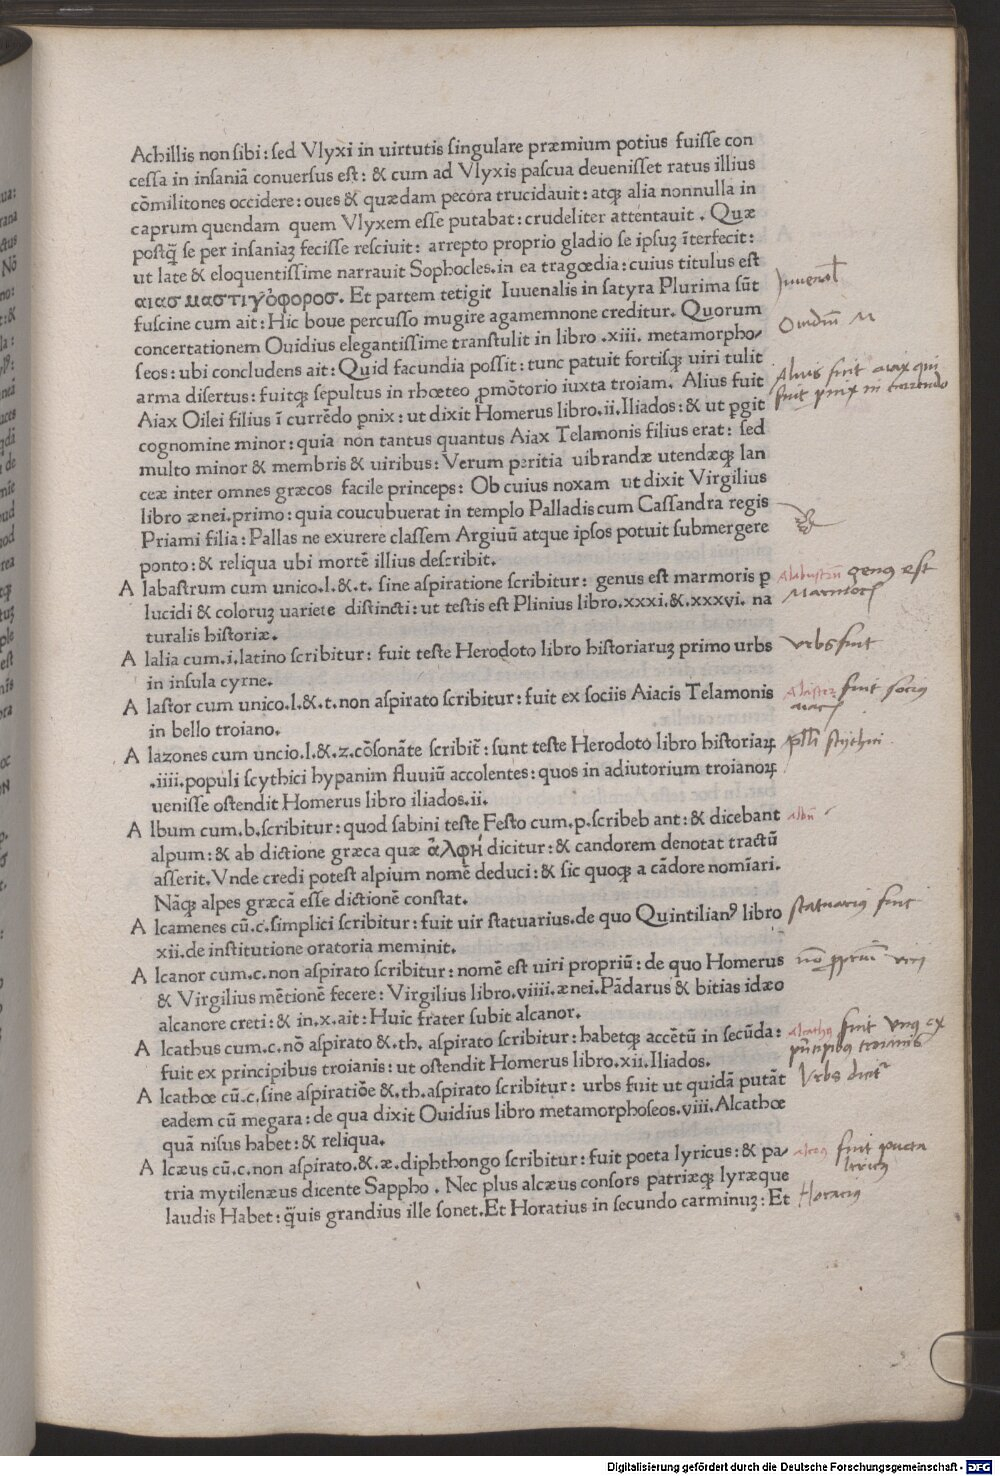 Achillis non sibi: sed Vlyxi in uirtutis singulare præmium potius fuisse con
cessa in insaniã conuersus est: & cum ad Vlyxis pascua deuenisset ratus illius
cõmilitones occidere: oues & quædam pecora trucidauit: atqꝫ alia nonnulla in
caprum quendam quem Vlyxem esse putabat: crudeliter attentauit. Quæ
postq̃ se per insaniaꝫ fecisse resciuit: arrepto proprio gladio se ipsuꝫ ĩterfecit:
ut late & eloquentissime narrauit Sophocles. in ea tragœdia: cuius titulus est
αιασ μαστιγὀφοροσ. Et partem tetigit Iuuenalis in satyra Plurima sũt
Iuuenal
fuscine cum ait: Hic boue percusso mugire agamemnone creditur. Quorum
Ouidiũ M
concertationem Ouidius elegantissime transtulit in libro .xiii. metamorpho/
seos: ubi concludens ait: Quid facundia possit: tunc patuit fortisqꝫ uiri tulit
arma disertus: fuitqꝫ sepultus in rhœteo ꝓmõtorio iuxta troiam. Alius fuit
Alius fuit aiax qui
Aiax Oilei filius ĩ currẽdo pnix: ut dixit Homerus libro.ii.Iliados: & ut ꝑgit
fuit pnix in currendo
cognomine minor: quia non tantus quantus Aiax Telamonis filius erat: sed
multo minor & membris & uiribus: Verum peritia uibrandæ utendæqꝫ lan
ceæ inter omnes græcos facile princeps: Ob cuius noxam ut dixit Virgilius
libro ænei.primo: quia coucubuerat in templo Palladis cum Cassandra regis
Priami filia: Pallas ne exurere classem Argiuũ atque ipsos potuit submergere
ponto: & reliqua ubi mortẽ illius describit.
A labastrum cum unico.l.&.t. sine aspiratione scribitur: genus est marmoris ꝑ
Alabustrũ genus est
lucidi & coloruꝫ uariete distincti: ut testis est Plinius libro.xxxi.&.xxxvi. na
marmoris
turalis historiæ.
A lalia cum.i.latino scribitur: fuit teste Herodoto libro historiaruꝫ primo urbs
urbs fuit
in insula cyrne.
A lastor cum unico.l.&.t.non aspirato scribitur: fuit ex sociis Aiacis Telamonis
Alastor fuit socius
aiacis
in bello troiano.
A lazones cum uncio.l.&.z.cõsonãte scribit̃: sunt teste Herodoto libro historiaꝝ
ppli scythici
.iiii.populi scythici hypanim fluuiũ accolentes: quos in adiutorium troianoꝝ
uenisse ostendit Homerus libro iliados.ii.
A lbum cum.b.scribitur: quod sabini teste Festo cum.p.scribeb ant: & dicebant
albũ
alpum: & ab dictione græca quæ ἀλφή dicitur: & candorem denotat tractũ
asserit. Vnde credi potest alpium nomẽ deduci: & sic quoqꝫ a cãdore nomĩari.
Nãqꝫ alpes græcã esse dictionẽ constat.
A lcamenes cũ.c.simplici scribitur: fuit uir statuarius.de quo Quintilianꝰ libro
statuarius fuit
xii.de institutione oratoria meminit.
A lcanor cum.c.non aspirato scribitur: nomẽ est uiri propriũ: de quo Homerus
& Virgilius mẽtionẽ fecere: Virgilius libro.viiii.ænei.Pãdarus & bitias idæo
alcanore creti: & in.x.ait: Huic frater subit alcanor.
A lcathus cum.c.nõ aspirato &.th. aspirato scribitur: habetqꝫ accẽtũ in secũda:
Alcathus fuit unus ex
principibus troianis
fuit ex principibus troianis: ut ostendit Homerus libro.xii.Iliados.
A lcathœ cũ.c.sine aspiratiõe &.th.aspirato scribitur: urbs fuit ut quidã putãt
Vrbs
eadem cũ megara: de qua dixit Ouidius libro metamorphoseos.viii.Alcathœ
quã nisus habet: & reliqua.
A lcæus cũ.c.non aspirato.&.æ.diphthongo scribitur: fuit poeta lyricus: & pa/
fuit poeta
liricus
tria mytilenæus dicente Sappho. Nec plus alcæus consors patriæqꝫ lyræque
Horacius
laudis Habet: q̃uis grandius ille sonet.Et Horatius in secundo carminuꝫ: Et
Digitalisierung gefördert durch die Deutsche Forschungsgemeinschaft - DFG